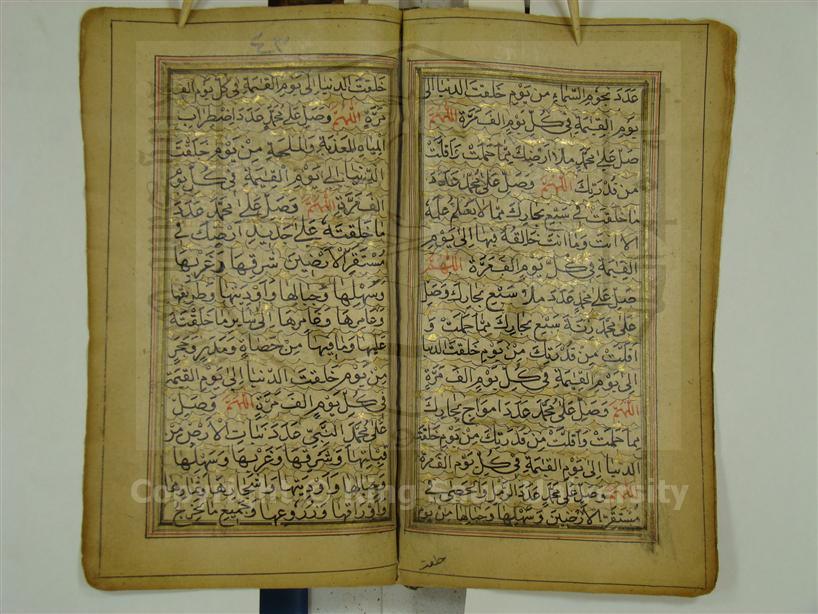 عدد نجوم السماء من يوم خلقت الدنيا الى
يوم القيمة في كل يوم الف مرة اللهم
صل على محمد ملأ ارضك مما حملت واقلت
من قدرتك اللهم وصل على محمد عدد
ما خلقت في سبع بحارك مما لا يعلم علمه
الا انت وما انت خالقه فيها الى يوم
القيمة في كل يوم الف مرة اللهم
صل على محمد عدد ملأ سبع بحارك وصل
على محمد زنة سبع بحارك مما حملت و
اقلت من قدرتك من يوم خلقت الدنيا
الى يوم القيمة في كل يوم الف مرة
اللهم وصل على محمد عدد امواج بحارك
مما حملت واقلت من قدرتك من يوم خلقت
الدنيا الى يوم القيمة في كل يوم الف مرة
اللهم وصل على محمد عدد الرمل والحصى في
مستقر الارضين وسهلها وجبالها من يوم
خلقت
خلقت الدنيا الى يوم القيمة في كل يوم الف
مرة اللهم وصل على محمد عدد اضطراب
المياه العذبة والملحة من يوم خلقت
الدنيا الى يوم القيمة في كل يوم
الف مرة اللهم وصل على محمد عدد
ما خلقته على جديد ارضك في
مستقر الارضين شرقها وغربها
وسهلها وجبالها واوديتها وطريقها
وعامرها وغامرها الى سائر ما خلقته
عليها وما فيها من حصاة ومدر وحجر
من يوم خلقت الدنيا الى يوم القيمة
في كل يوم الف مرة اللهم وصل
على محمد النبي عدد نبات الارض من
قبلتها وشرقها وغربها وسهلها
وجبالها واوديتها واشجارها وثمارها
واوراقها وزروعها وجميع ما يخرج
Copyright © King Saud University